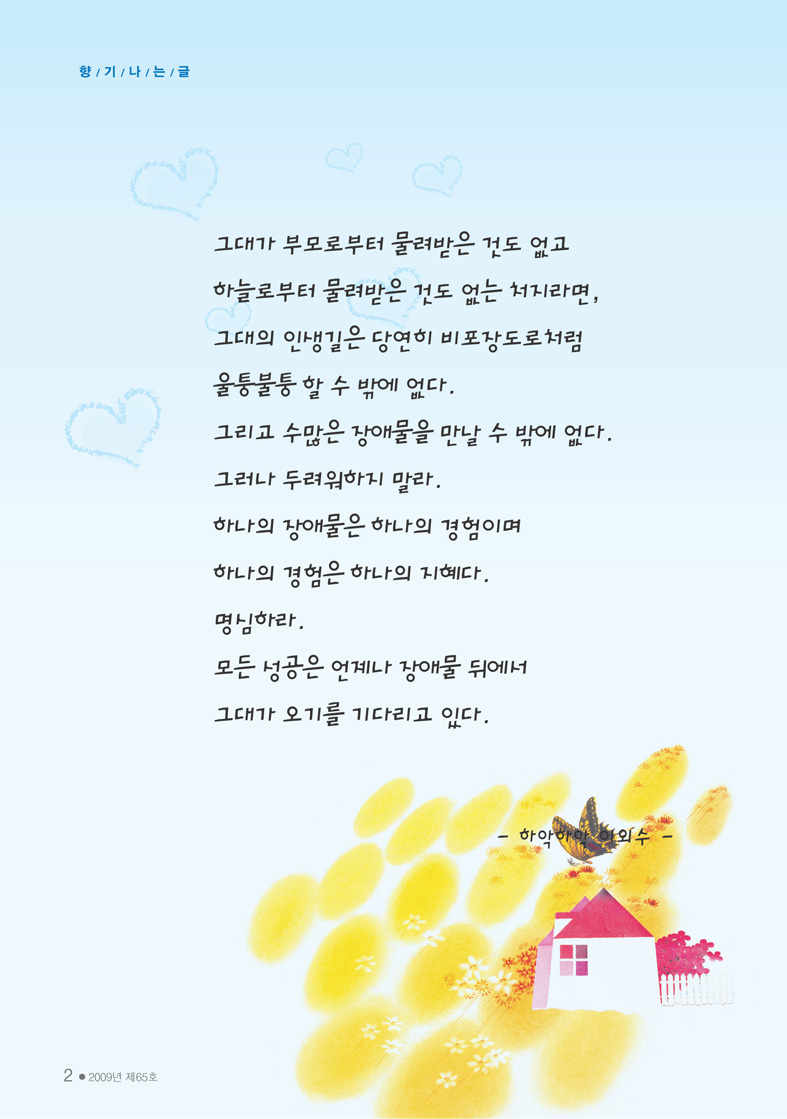 향/기/나/는/글
그대가 부모로부터 물려받은 것도 없고
하늘로부터 물려받은 것도 없는 처지라면,
그대의 인생길은 당연히 비포장도로처럼
울퉁불퉁 할 수 밖에 없다.
그리고 수많은 장애물을 만날 수 밖에 없다.
그러나 두려워하지 말라.
하나의 장애물은 하나의 경험이며
하나의 경험은 하나의 지혜다.
명심하라.
모든 성공은 언제나 장애물 뒤에서
그대가 오기를 기다리고 있다.
- 하악하악 이외수 -
2 ● 2009년 제65호